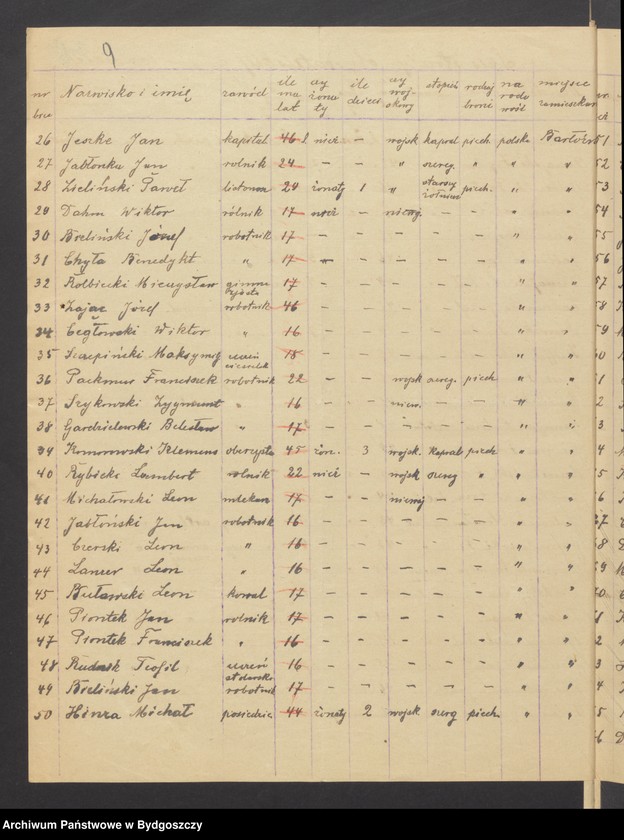 9
nr Nazwisko i imię zawód ile ma lat czy żonaty ile dzieci czy wojskowy stopień rodzaj broni narodowość miejsce zamieszkan
26 Jeszke Jan 46 nież — wojsk kapral piech polska
27 Jabłonka Jan rolnik 24 — — " szereg. " " "
28 Zieliński Paweł 24 żonaty 1 " starszy piech. " "
29 Dahm Wiktor rólnik 17 nież — niewoj — — " "
30 Breliński Józef robotnik 17 — — — — — " "
31 Chyła Benedykt " 17 " — — — — " "
32 Rolbiecki Mieczysław 17 — — — — — " "
33 Zając Józef robotnik 46 — — — — — " "
34 Cegłowski Wiktor " 16 — — — — — " "
35 Szczepiński uczeń 18 — — — — — " "
36 Franciszek robotnik 22 — — wojsk szereg. piech " "
37 Szykowski Zygmunt " 16 — — niew. — — " "
38 Gardzielewski Bolesław " 17 — — — — — " "
39 Komorowski Klemens 45 żon. 3 wojsk. kapral piech " "
40 Rybicki Lambert rolnik 22 nież — wojsk szereg " " "
41 Michałowski Leon 17 — — niewoj — — " "
42 Jabłoński Jan robotnik 16 — — — — — " "
43 Czerski Leon " 16 — — — — — " "
44 Leon " 16 — — — — — " "
45 Buławski Leon kowal 17 — — — — — " "
46 Piontek Jan rolnik 17 — — — — — " "
47 Piontek Franciszek " 16 — — — — — " "
48 Teofil uczeń stolarski 16 — — — — — " "
49 Breliński Jan robotnik 17 — — — — — " "
50 Hinza Michał 44 żonaty 2 wojsk szereg piech. " "
Archiwum Państwowe w Bydgoszczy